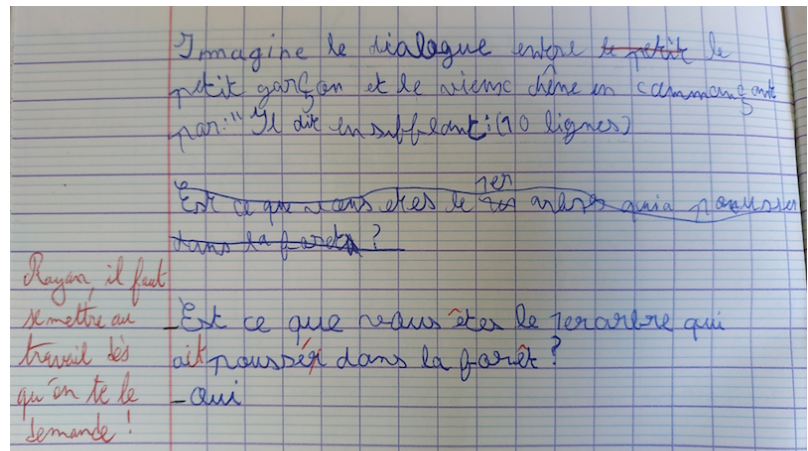 Immagine le dialogue entre le petit le
petit garçon et le vieux chêne en commançant
par:" Il dit en sufflant: (10 lignes)
Est ce que vous etes le 1er arbre qui a pousser
dans la foret ?
Rayan, il faut
se mettre au
travail dès
qu'on te le
demande !
_Est ce que vous êtes le 1er arbre qui
ait poussér dans la forêt ?
_Oui